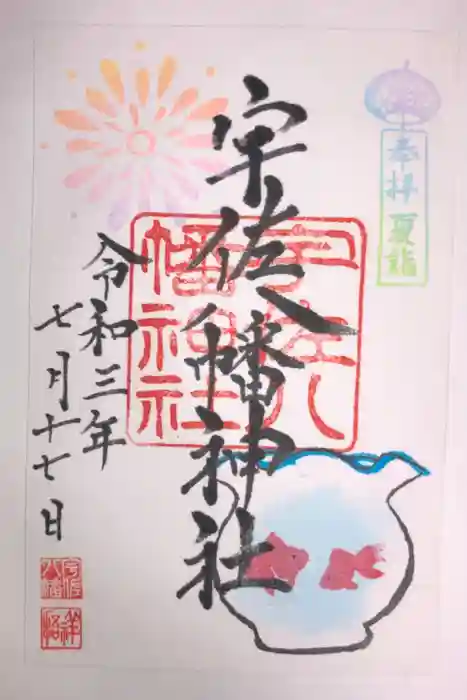 奉拝 夏詣
宇佐八幡神社
宇佐八幡神社
令和三年
七月十七日
宇佐
八幡